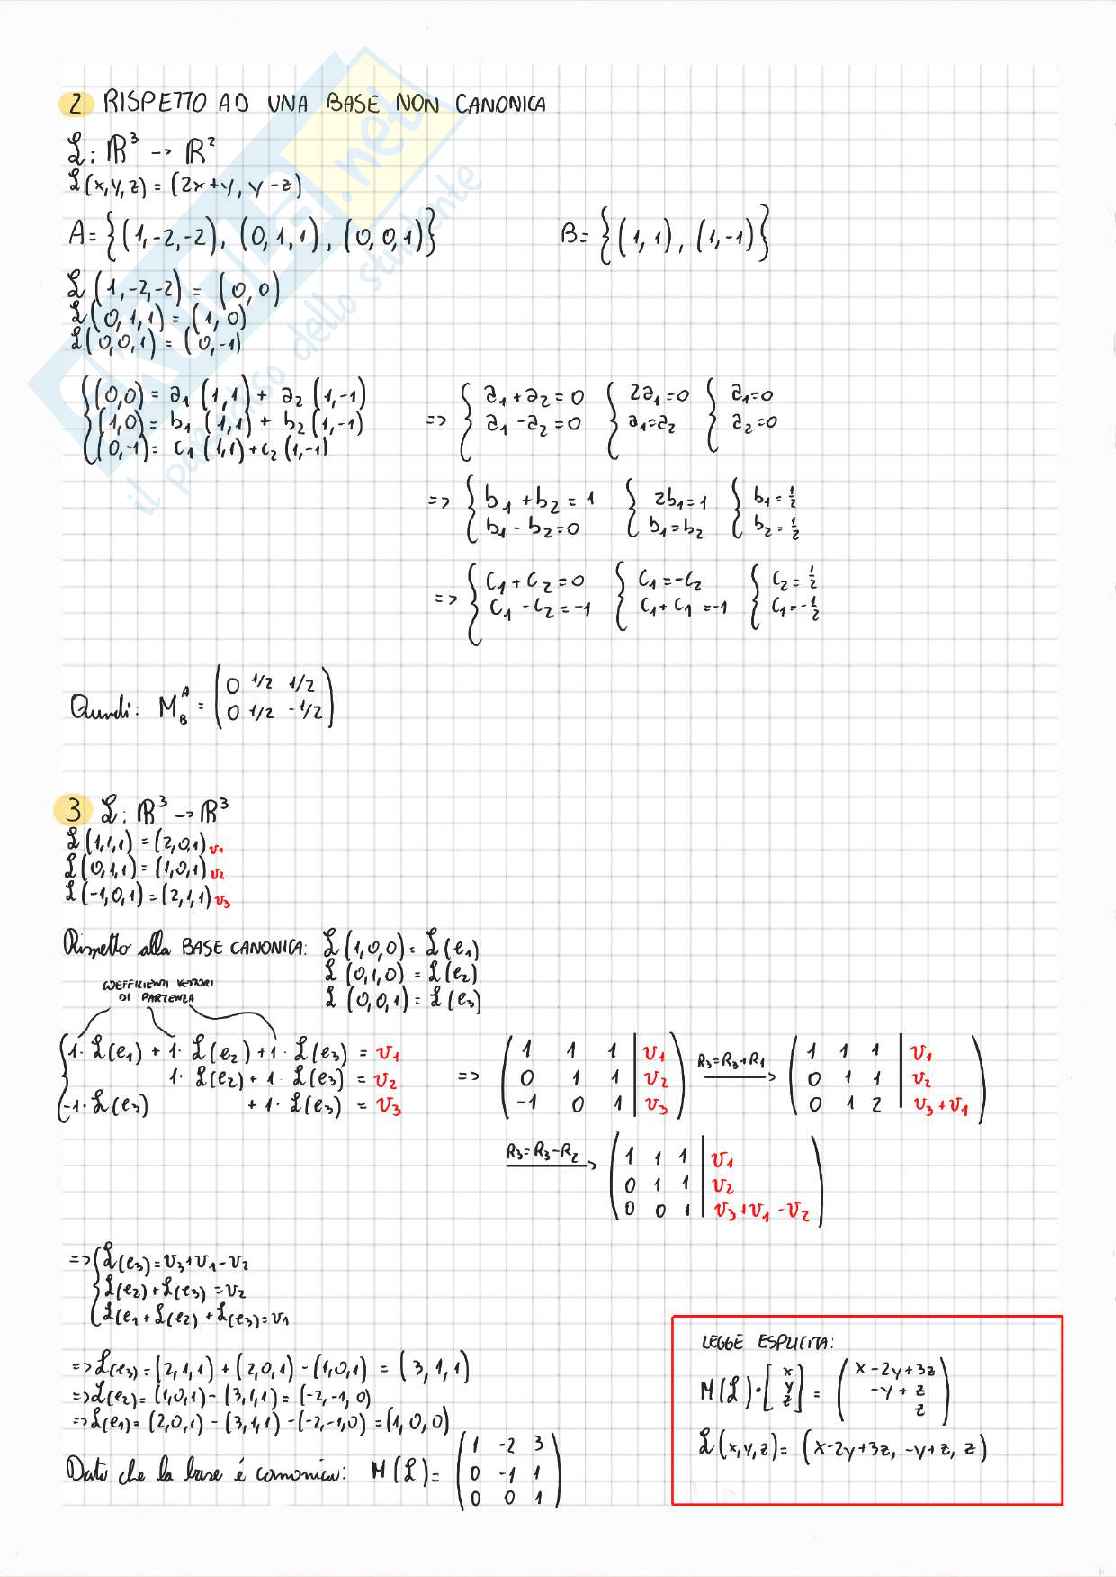 2 RISPETTO AD UNA BASE NON CANONICA
ℒ: ℝ³ -> ℝ²
ℒ(x,y,z) = (2x+y, y-z)
A = {(1,-2,-2), (0,1,1), (0,0,1)} B = {(1,1), (1,-1)}
ℒ(1,-2,-2) = (0,0)
ℒ(0,1,1) = (1,0)
ℒ(0,0,1) = (0,-1)
{(0,0) = a₁(1,1) + a₂(1,-1) => {a₁+a₂=0 {2a₁=0 {a₁=0
(1,0) = b₁(1,1) + b₂(1,-1) a₁-a₂=0 a₁=a₂ a₂=0
(0,-1) = c₁(1,1)+c₂(1,-1)
=> {b₁+b₂=1 {2b₁=1 {b₁=1/2
b₁-b₂=0 b₁=b₂ b₂=1/2
=> {c₁+c₂=0 {c₁=-c₂ {c₂=1/2
c₁-c₂=-1 c₁+c₁=-1 c₁=-1/2
Quindi: M_B^A = (0 1/2 1/2
0 1/2 -1/2)
3 ℒ: ℝ³ -> ℝ³
ℒ(1,1,1) = (2,0,1) v₁
ℒ(0,1,1) = (1,0,1) v₂
ℒ(-1,0,1) = (2,1,1) v₃
Rispetto alla BASE CANONICA: ℒ(1,0,0) = ℒ(e₁)
ℒ(0,1,0) = ℒ(e₂)
ℒ(0,0,1) = ℒ(e₃)
COEFFICIENTI VETTORI
DI PARTENZA
{1·ℒ(e₁) + 1·ℒ(e₂) + 1·ℒ(e₃) = v₁
1·ℒ(e₂) + 1·ℒ(e₃) = v₂
-1·ℒ(e₃) + 1·ℒ(e₃) = v₃
=> (1 1 1 | v₁
0 1 1 | v₂
-1 0 1 | v₃)
R₃=R₃+R₁ -> (1 1 1 | v₁
0 1 1 | v₂
0 1 2 | v₃+v₁)
R₃=R₃-R₂ -> (1 1 1 | v₁
0 1 1 | v₂
0 0 1 | v₃+v₁-v₂)
=> {ℒ(e₃)=v₃+v₁-v₂
ℒ(e₂)+ℒ(e₃)=v₂
ℒ(e₁+ℒ(e₂)+ℒ(e₃)=v₁
=> ℒ(e₃) = (2,1,1) + (2,0,1) - (1,0,1) = (3,1,1)
=> ℒ(e₂) = (1,0,1) - (3,1,1) = (-2,-1,0)
=> ℒ(e₁) = (2,0,1) - (3,1,1) - (-2,-1,0) = (1,0,0)
Dato che la base é canonica: M(ℒ) = (1 -2 3
0 -1 1
0 0 1)
LEGGE ESPLICITA:
M(ℒ)·[x y z] = (x-2y+3z
-y+z
z)
ℒ(x,y,z) = (x-2y+3z, -y+z, z)
skuola.net
il paradiso dello studente